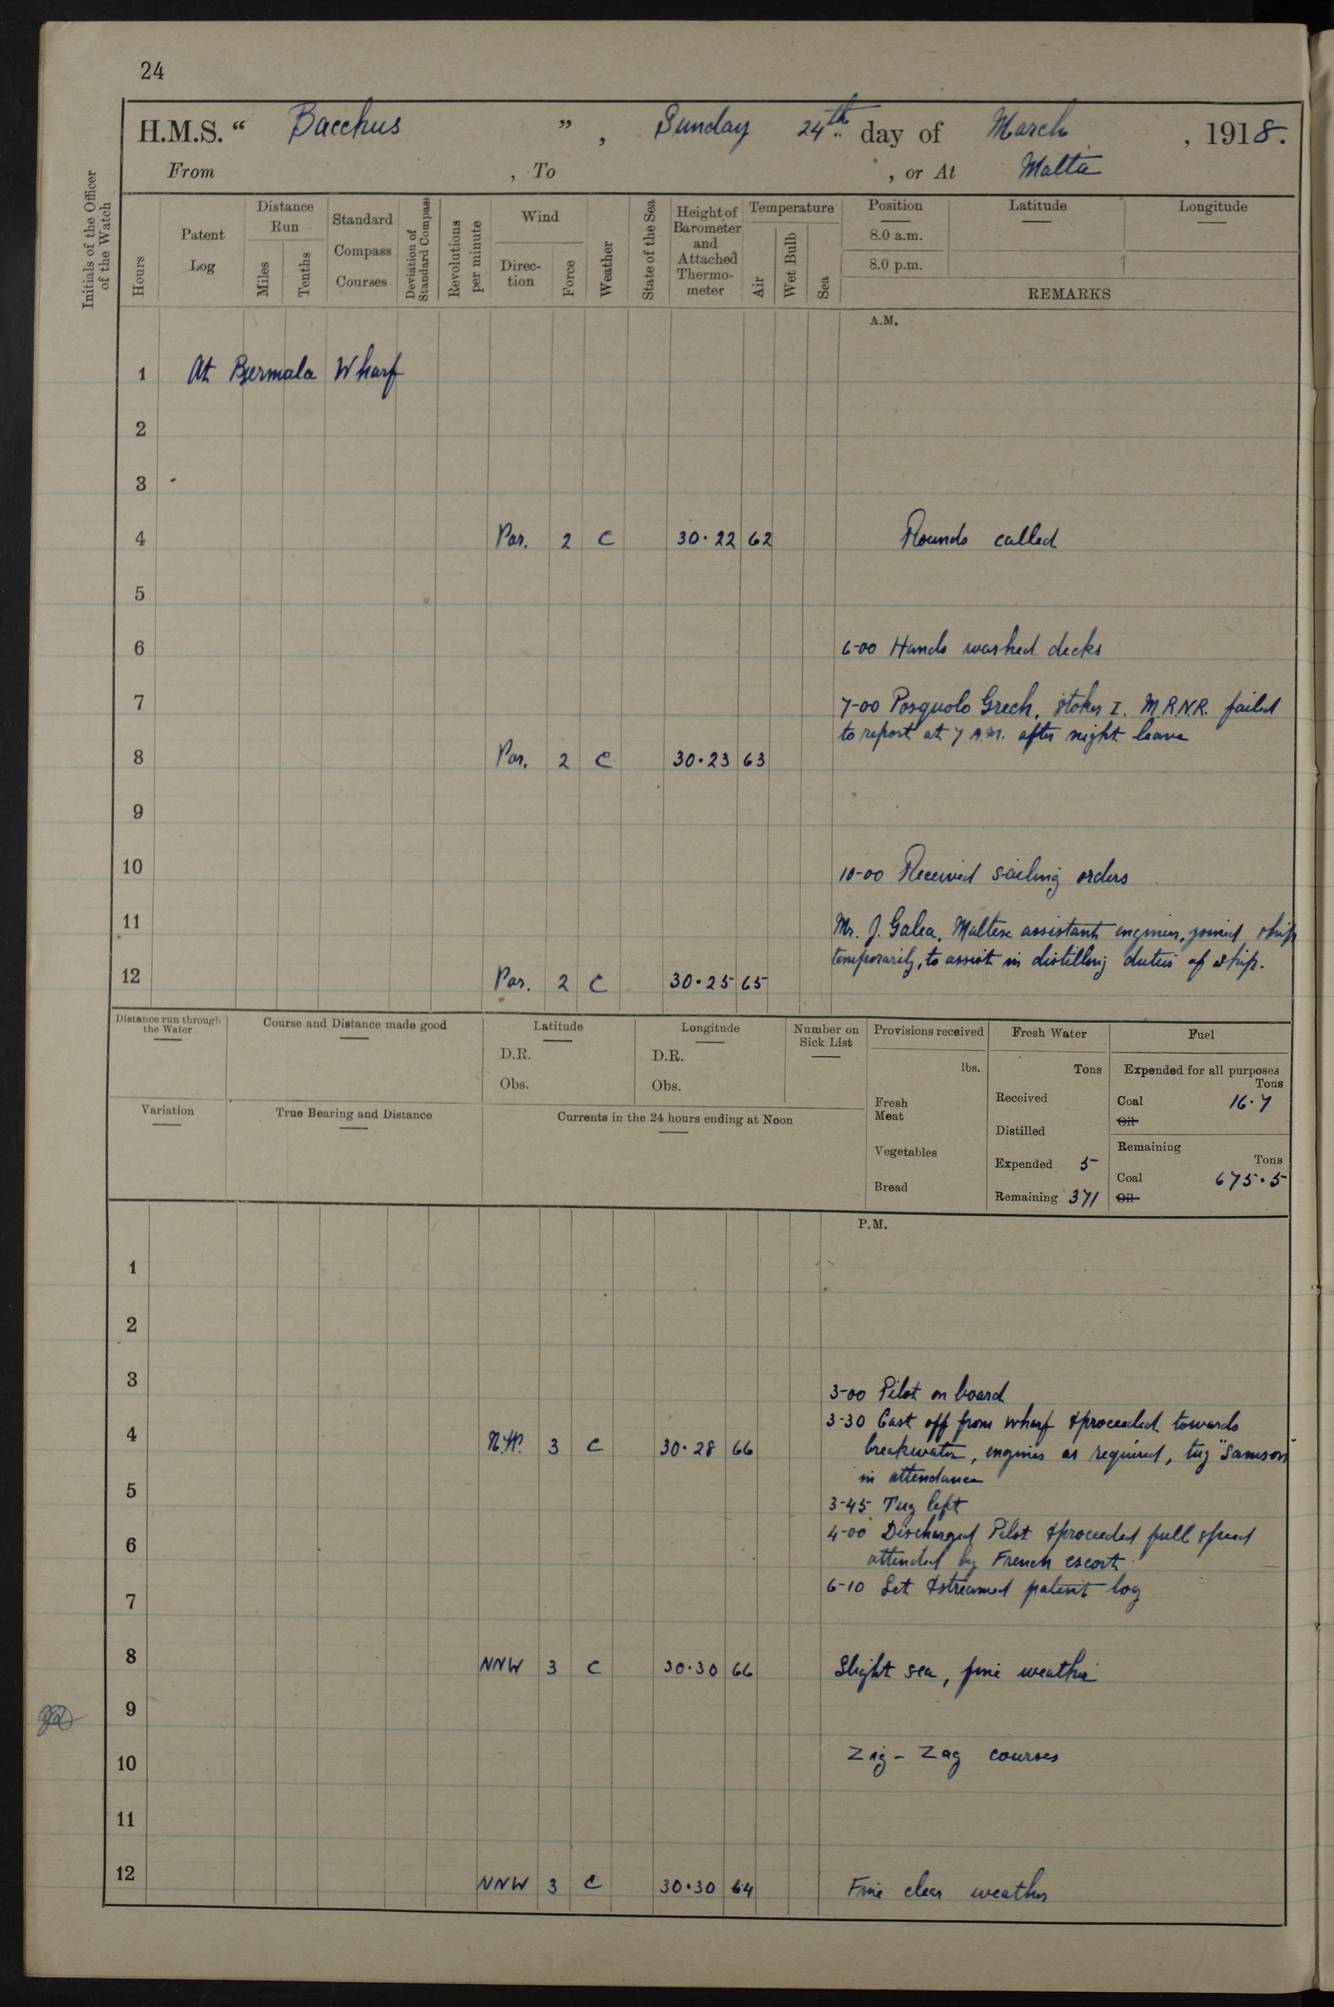 24
H.M.S. “ Bacchus ”, Sunday 24th day of March, 1918.
From , To , or At Malta
Initials of the Officer of the Watch
Hours
Patent Log
Distance Run
Miles
Tenths
Standard Compass Courses
Deviation of Standard Compass
Revolutions per minute
Wind
Direc-tion
Force
Weather
State of the Sea
Height of Barometer and Attached Thermo-meter
Temperature
Air
Wet Bulb
Sea
Position
Latitude
Longitude
8.0 a.m.
8.0 p.m.
REMARKS
A.M.
1 At Burmala Wharf
2
3
4 Var. 2 C 30·22 62 Rounds called
5
6 6-00 Hands washed decks
7 7-00 Pasquolo Grech, stoker I. M.R.N.R. failed
to report at 7 A.M. after night leave
8 Var. 2 C 30·23 63
9
10 10-00 Received sailing orders
11 Mr. J. Galea, Maltese assistant engineer, joined ship
temporarily, to assist in distilling duties of ship.
12 Var. 2 C 30·25 65
Distance run through the Water
Course and Distance made good
Latitude
D.R.
Obs.
Longitude
D.R.
Obs.
Number on Sick List
Provisions received
lbs.
Fresh Meat
Vegetables
Bread
Fresh Water
Tons
Received
Distilled
Expended 5
Remaining 371
Fuel
Expended for all purposes
Tons
Coal 16·7
Oil
Remaining
Tons
Coal 675·5
Oil
Variation
True Bearing and Distance
Currents in the 24 hours ending at Noon
P.M.
1
2
3 3-00 Pilot on board
3-30 Cast off from wharf & proceeded towards
4 N.W. 3 C 30·28 66 breakwater, engines as required, tug "Samson"
in attendance
5 3-45 Tug left
4-00 Discharged Pilot & proceeded full speed
6 attended by French escort.
6-10 Set & streamed patent log
7
8 NNW 3 C 30·30 66 Slight sea, fine weather
9
10 Zig-Zag courses
11
12 NNW 3 C 30·30 64 Fine clear weather